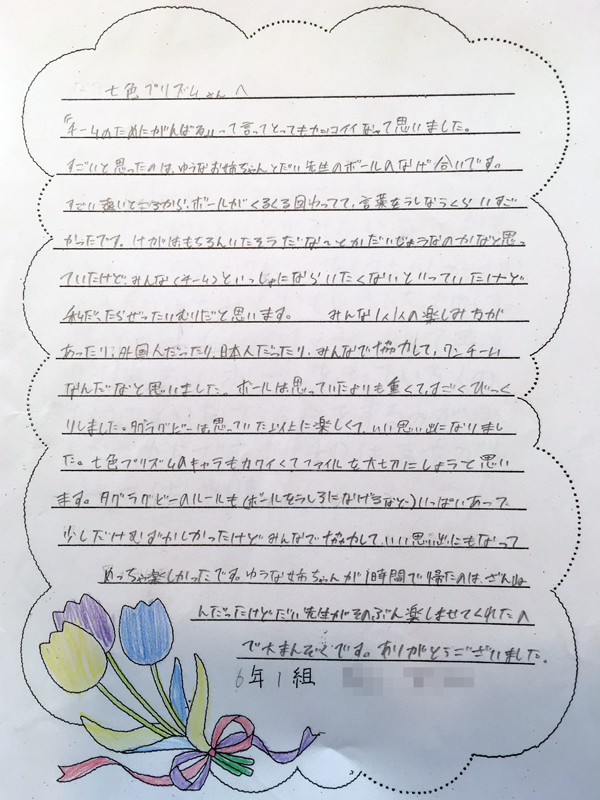 七色プリズムさんへ
「チームのためにがんばる」って言ってとってもカッコイイなって思いました。
すごいと思ったのは、ゆうなお姉ちゃんとだい先生のボールのなげ合いです。
すごい遠いところから、ボールがくるくる回わってて、言葉をうしなうくらいすご
かったです。けがはもちろんいたそうだな〜とかだいじょうなのかなと思っ
ていたけど、みんな(チーム)といっしょにならいたくないといっていたけど
私だったらぜったいむりだと思います。 みんな1人1人の楽しみ方が
あったり、外国人だったり、日本人だったり、みんなで協力して、ワンチーム
なんだなと思いました。ボールは思っていたよりも重くて、すごくびっく
りしました。タグラグビーは思っていた以上に楽しくて、いい思い出になりまし
た。七色プリズムのキャラもカワイくてファイルを大切にしようと思い
ます。タグラグビーのルールも(ボールをうしろになげるなど)いっぱいあって
少しだけむずかしかったけどみんなで協力して、いい思い出にもなって
めっちゃ楽しかったです。ゆうな姉ちゃんが1時間で帰たのは、ざんね
んだったけどだい先生がそのぶん楽しませてくれたの
で大まんぞくです。ありがとうございました。
6年1組